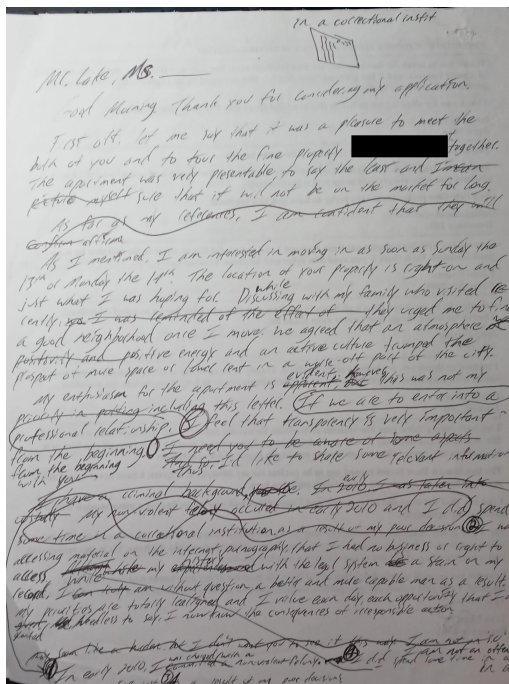 in a correctional instit
Mr. Lake, Ms.
Good Morning Thank you for considering my application.
First off, let me say that it was a pleasure to meet the
both of you and to tour the fine property together.
The apartment was very presentable, to say the least and I mean
picture myself sure that it will not be on the market for long.
As for as my references, I am confident that they will
confirm affirm
As I mentioned, I am interested in moving in as soon as Sunday the
13th or Monday the 14th. The location of your property is right-on and
just what I was hoping for. Discussing while with my family who visited re
cently, I was reminded of the effect of they urged me to find
a good neighborhood once I move. We agreed that an atmosphere of
positivity and positive energy and an active culture trumped the
prospect of more space or lower rent in a worse-off part of the city.
My enthusiasm for the apartment is apparent but evident, however, this was not my
priority in including this letter. If we are to enter into a
professional relationship, I feel that transparency is very important
from the beginning. I need you to be aware of some aspects
from the beginning thus, I'd like to share some relevant information
with you.
I have a criminal background, In early 2010 I was taken into
My non-violent felony occured in early 2010 and I did spend
some time in a correctional institution as a result of my poor decision
accessing material on the internet, pornography, that I had no business or right to
access. While my with the legal system is a stain on my
record, I am without question a better and more capable man as a result.
My priorities are totally realigned and I value each day, each opportunity that I
Needless to say, I now know the consequences of irresponsible action
may seem like a but I don't want you to see it this way. I am not
I am not an offen
In early 2010, I was charged with a non-violent felony. I did spend some time in a
in a
a result of my poor decisions